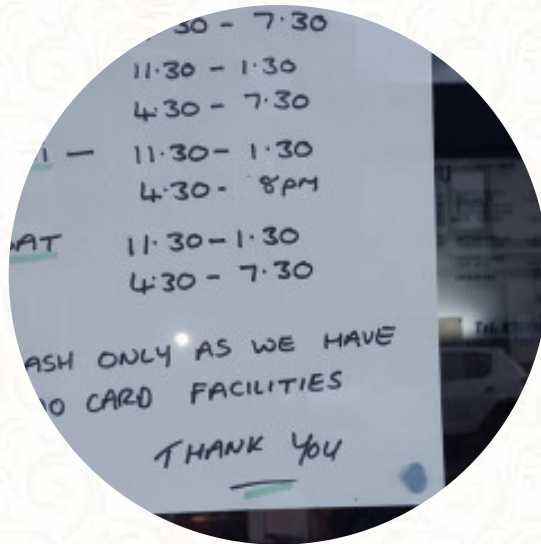 30 - 7·30
11·30 - 1·30
4·30 - 7·30
— 11·30 - 1·30
4·30 - 8pm
AT 11·30 - 1·30
4·30 - 7·30
ASH ONLY AS WE HAVE
O CARD FACILITIES
THANK YOU